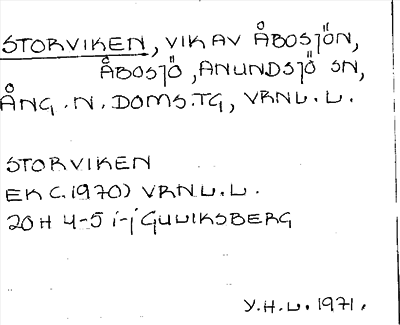 STORVIKEN, VIK AV ÅBOSJÖN,
ÅBOSJÖ, ANUNDSJÖ SN,
ÅNG. N. DOMS. TG, VRNL. L.
STORVIKEN
EK (.1970) VRNL. L.
20 H 4-5 i-j GULIKSBERG
Y. H. L. 1971.